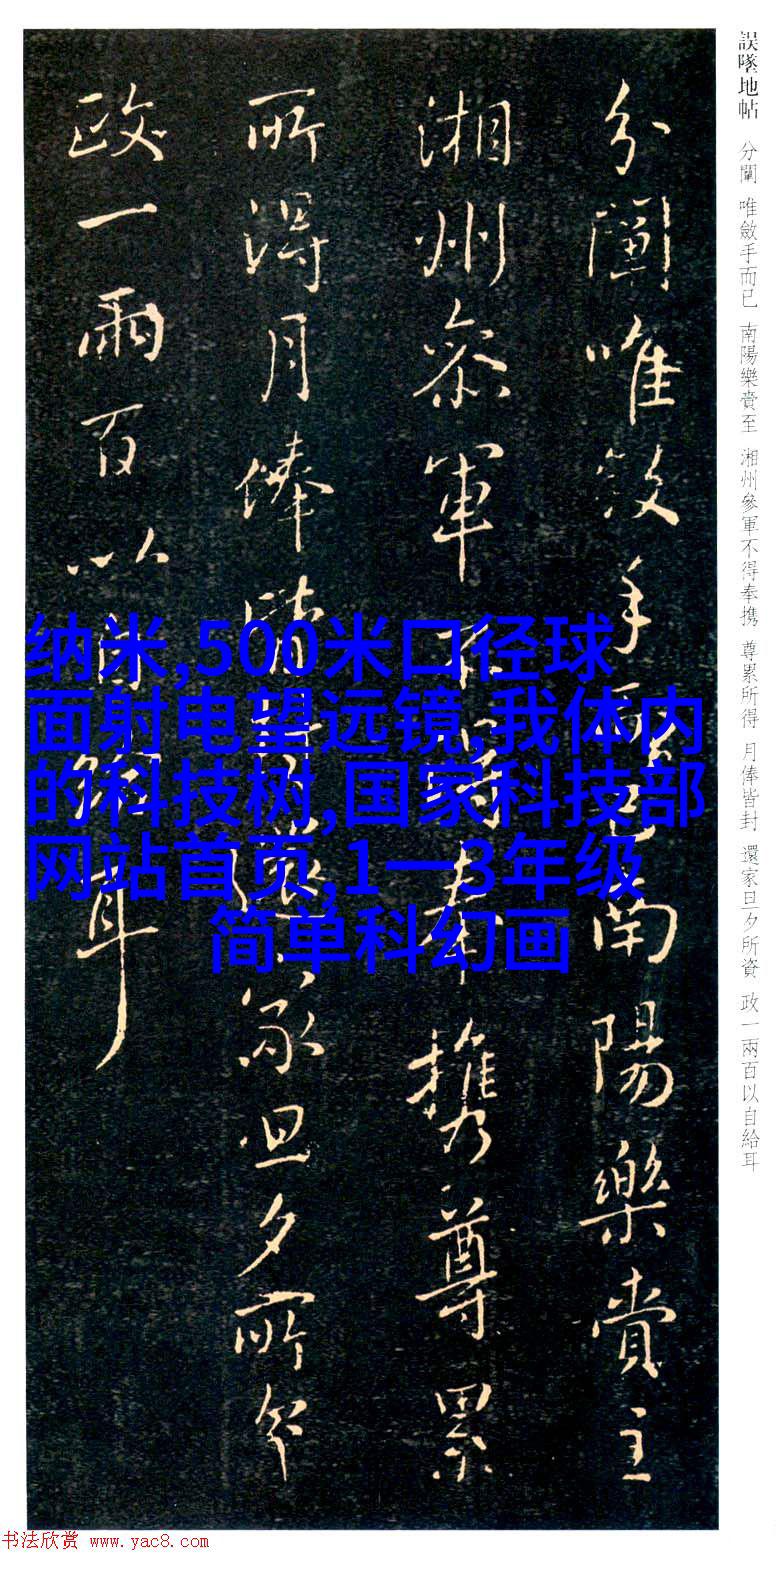 誤墜地帖 分闈 唯斂手而已 南陽樂賁至 湘州參軍不得奉携 尊累所得 月俸皆封 還家旦夕所資 政一兩百以自給耳
分闈唯斂手而已南陽樂賁至
湘州參軍不得奉携尊累
所得月俸皆封還家旦夕所資
政一兩百以自給耳
纳米,500米口径球
面射电望远镜,我体内
的科技树,国家科技部
网站首页,1一3年级
简单科幻画
书法欣赏 www.yac8.com